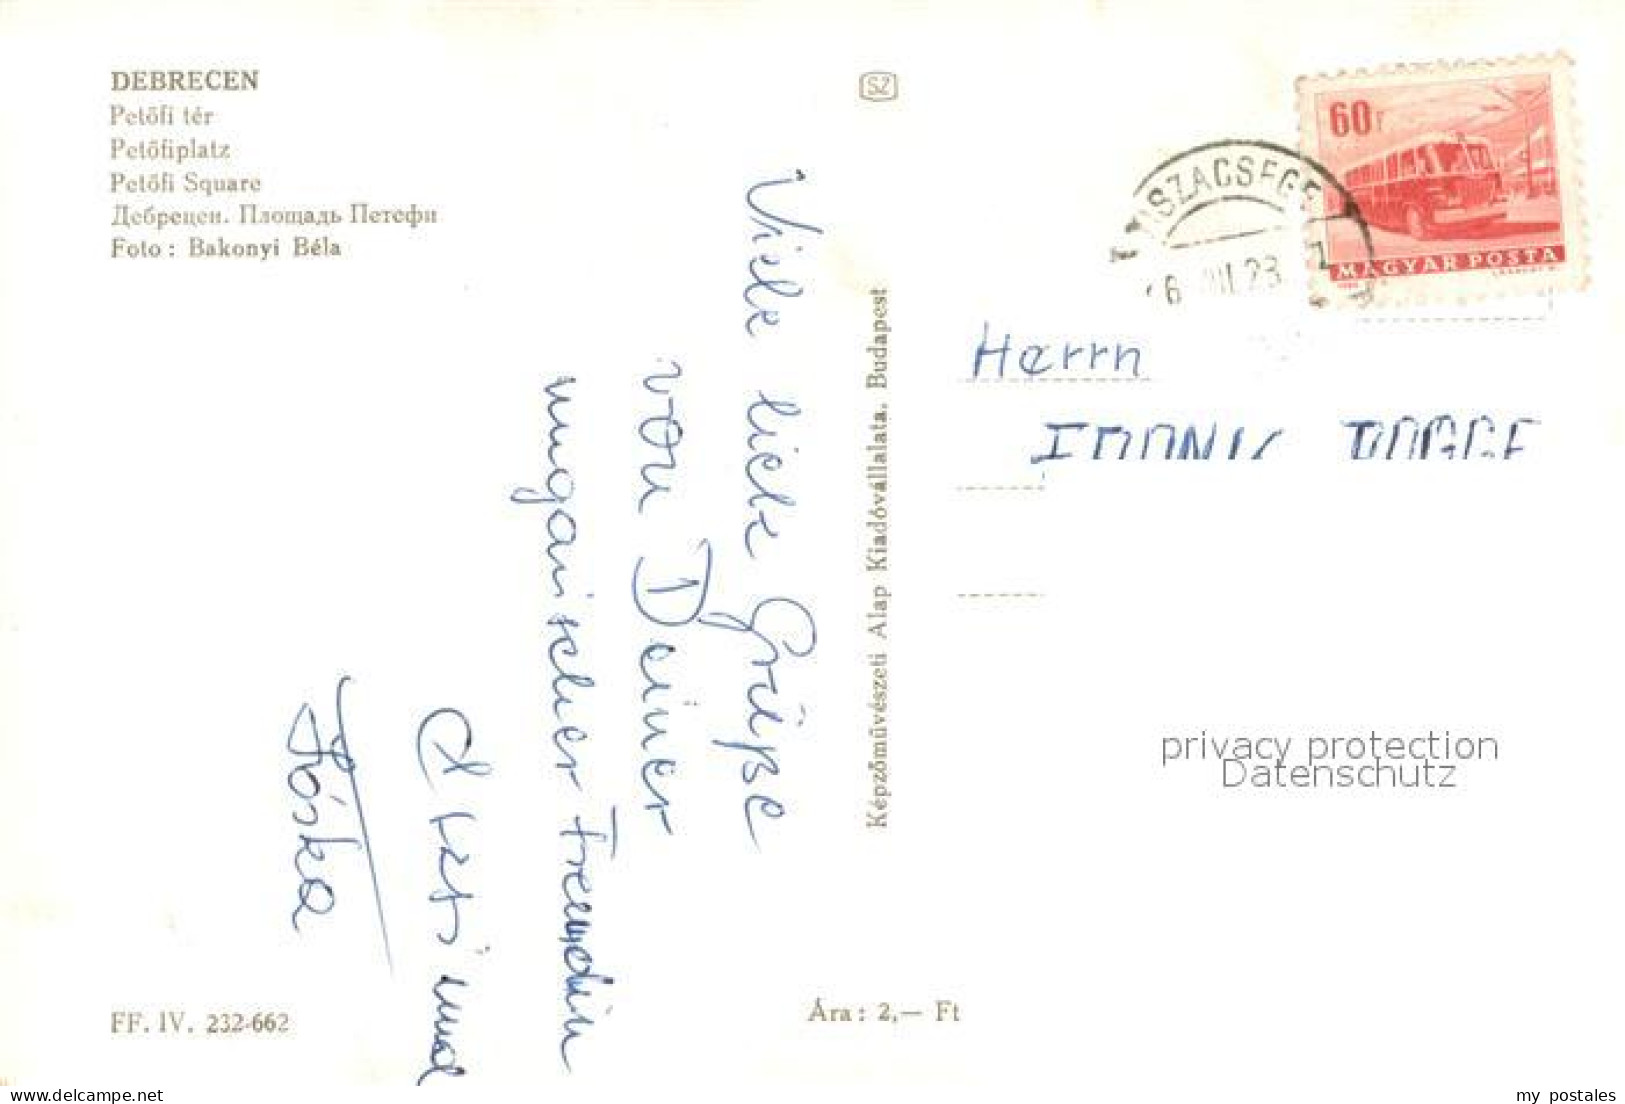 DEBRECEN
Petőfi tér
Petőfiplatz
Petőfi Square
Дебрецен. Площадь Петефи
Foto : Bakonyi Béla
SZ
60f
MAGYAR POSTA
TISZACSEGE
Viele liebe Grüße
von Deiner
ungarischer Freundin
Kati und
Jóska
Képzőművészeti Alap Kiadóvállalata, Budapest
Herrn
privacy protection
Datenschutz
FF. IV. 232-662
Ára : 2,— Ft
delcampe.net
my_postales